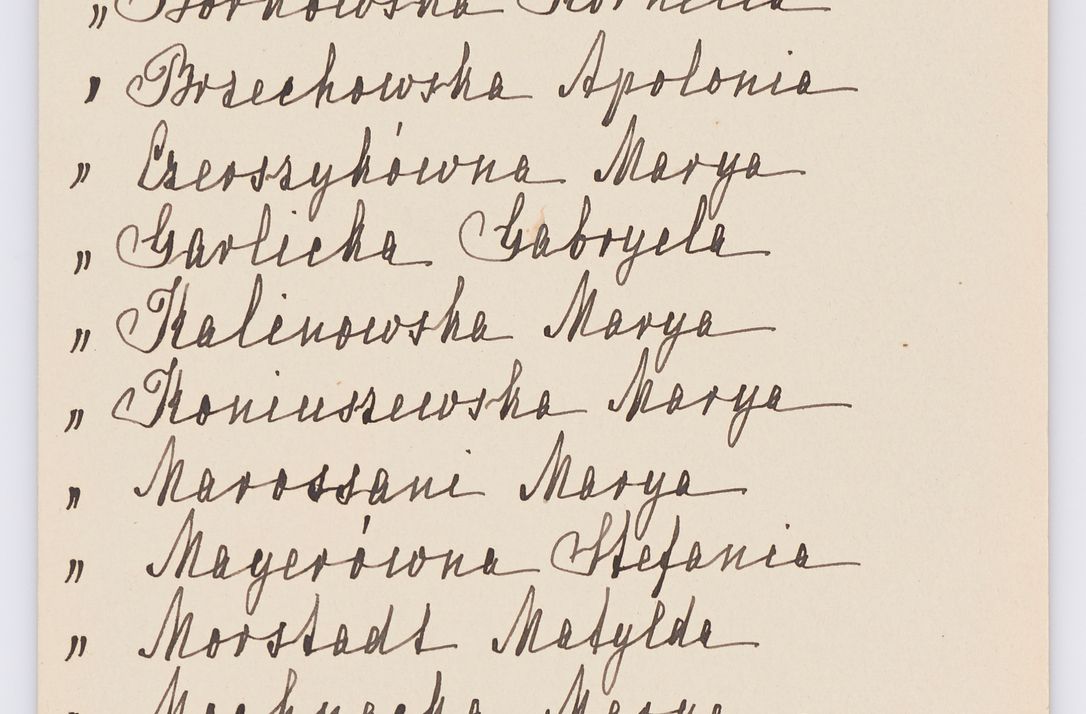 „ Bornowska Kornelia
„ Brzechowska Apolonia
„ Czerszykówna Marya
„ Garlicka Gabryela
„ Kalinowska Marya
„ Koniuszewska Marya
„ Marossani Marya
„ Mayerówna Stefania
„ Morstadt Matylda
„ Marya